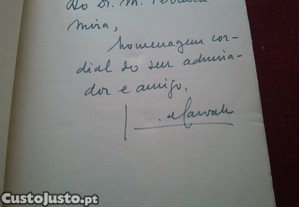 Ao Dr. M. Ferreira
Mira,
homenagem cor-
dial do seu admira-
dor e amigo,
de Carvalho
CustoJusto.pt